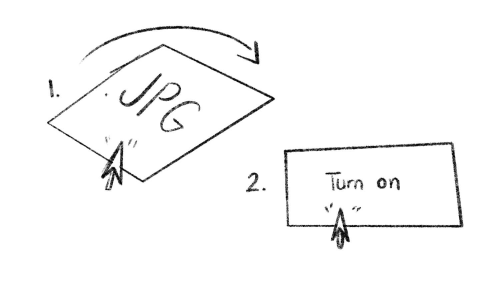 1.
JPG
2.
Turn on